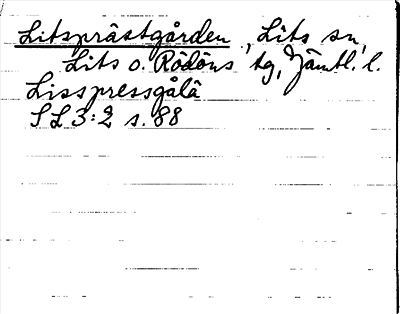 Litsprästgården, Lits sn,
Lits o. Rödöns tg, Jämtl. l.
Lisspressgålå
SL 3:2 s. 88